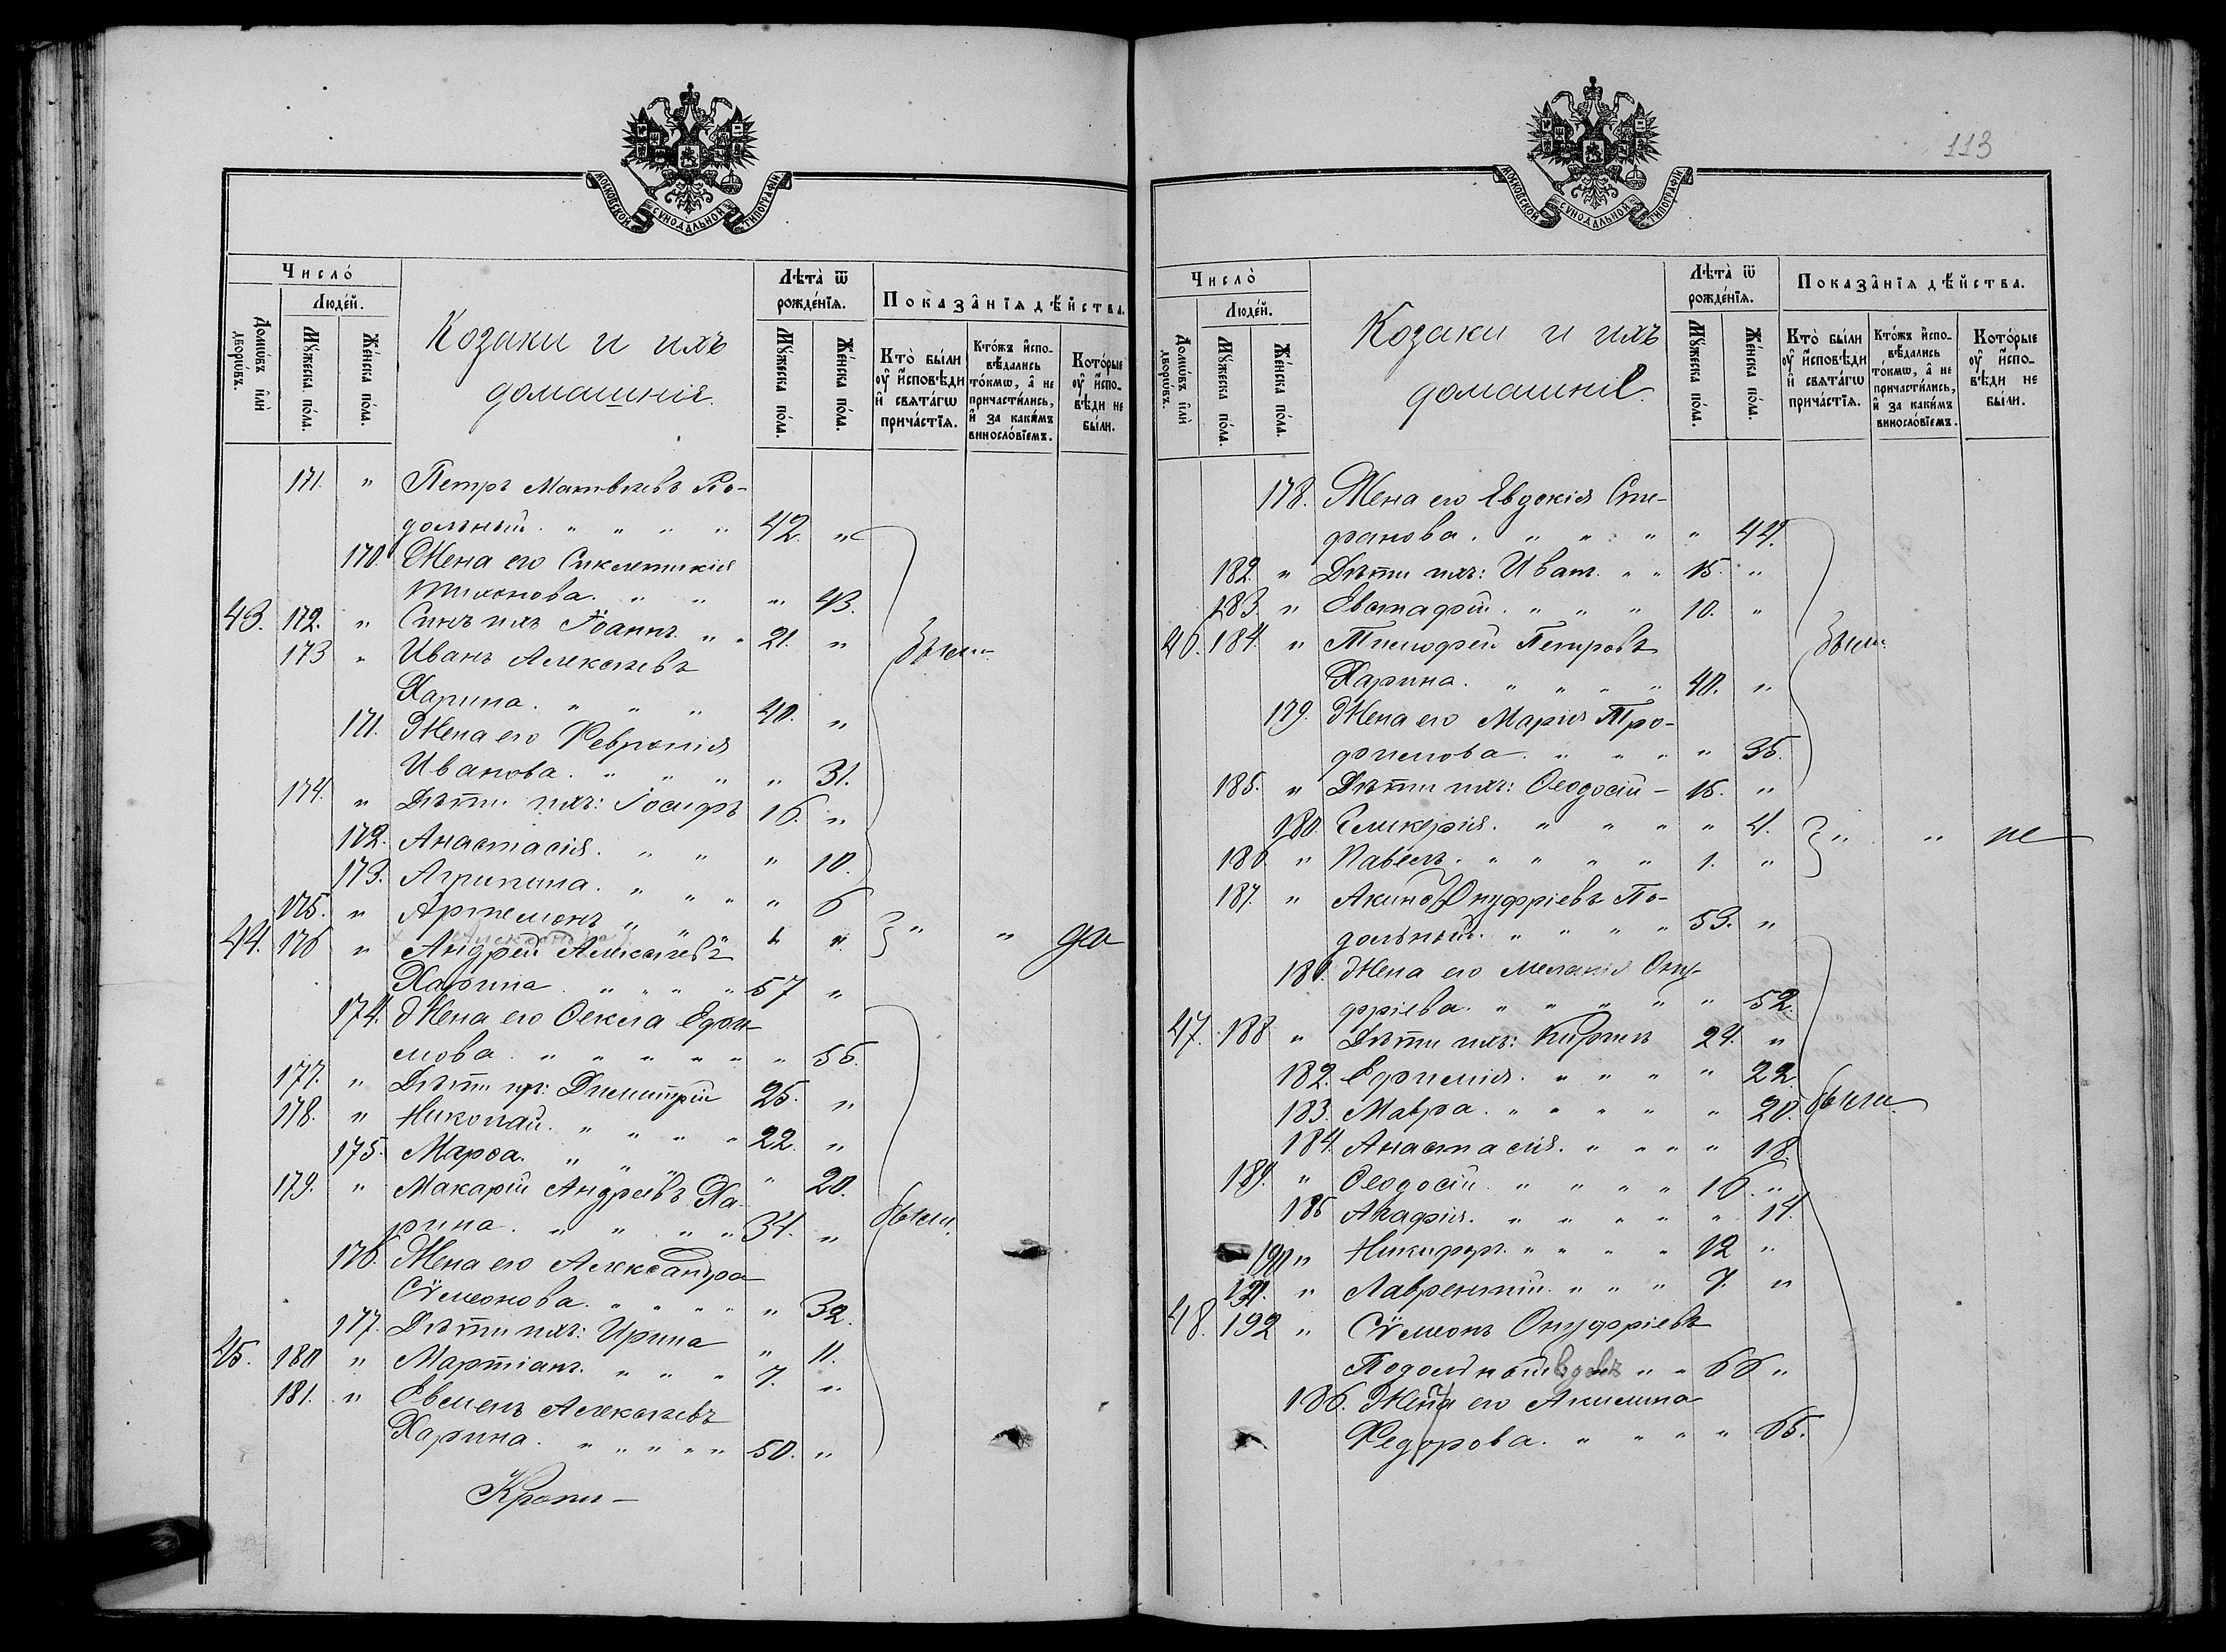 МОСКОВСКОЙ СѴНОДАЛЬНОЙ ТИПОГРАФІИ
Число̀
Домѡ́въ и҆лѝ дворѡ́въ.
Люде́й.
Мꙋ́жеска по́ла.
Же́нска по́ла.
Козаки и ихъ
домашнія.
Лѣта̀ ѿ
рожде́нїѧ.
Мꙋ́жеска по́ла.
Же́нска по́ла.
Показа̑нїѧ дѣ́йства.
Кто̀ бы́ли
оу҆ и҆сповѣ́ди
и҆ свѧта́гѡ
прича́стїѧ.
Кто́жъ и҆спо-
вѣ́дались
то́кмѡ, а҆ не
причасти́лись,
и҆ за каки́мъ
винословїемъ.
Кото́рые
оу҆ и҆спо-
вѣ́ди не
бы́ли.
171. " Петръ Матвѣевъ По-
дольный. " " " " 42. "
170. Жена его Сиклетикія
Тихонова. " " " 43.
43. 172. " Сынъ ихъ Іоаннъ. " " 21. "
173 " Иванъ Алексѣевъ
Харина. " " " 40. "
171. Жена его Февронія
Иванова. " " " " 31.
174. " Дѣти ихъ: Іосифъ 16. "
172. Анастасія. " " " 10.
173. Агрипина. " " " " 6
175. " Артемонъ " " " "
44. 176 " Андрей Алексѣевъ
Харина. " " " " 57 "
174. Жена его Ѳекла Ефи-
мова. " " " " " " 56.
177. " Дѣти ихъ: Димитрій 25. "
178. " Николай. " " " " 22. "
175. Марѳа. " " " " 20.
179. " Макарій Андреевъ Ха-
рина. " " " " 34. "
176. Жена его Александра
Сѵмеонова. " " " " " 32.
177. Дѣти ихъ: Ирина " 11.
45. 180 " Мартіанъ. " " " 7. "
181. " Евмень Алексѣевъ
Харина. " " " " " 50. "
были.
были.
Крони-
113
МОСКОВСКОЙ СѴНОДАЛЬНОЙ ТИПОГРАФІИ
Число̀
Домѡ́въ и҆лѝ дворѡ́въ.
Люде́й.
Мꙋ́жеска по́ла.
Же́нска по́ла.
Козаки и ихъ
домашніе.
Лѣта̀ ѿ
рожде́нїѧ.
Мꙋ́жеска по́ла.
Же́нска по́ла.
Показа̑нїѧ дѣ́йства.
Кто̀ бы́ли
оу҆ и҆сповѣ́ди
и҆ свѧта́гѡ
прича́стїѧ.
Кто́жъ и҆спо-
вѣ́дались
то́кмѡ, а҆ не
причасти́лись,
и҆ за каки́мъ
винословїемъ.
Кото́рые
оу҆ и҆спо-
вѣ́ди не
бы́ли.
178. Жена его Евдокія Сте-
фанова. " " " " " 44.
182. " Дѣти ихъ: Иванъ. " " 15. "
183. " Евстафій. " " " 10. "
46. 184. " Тимофей Петровъ
Харина. " " " " 40. "
179. Жена его Марія Тро-
фимова. " " " " 35.
185. " Дѣти ихъ: Ѳеодосій - 15. "
180. Гликерія. " " " " 4.
186. " Павелъ. " " " " 1. "
187. " Онуфріевъ По-
дольный. " " " " 53. "
181. Жена его Меланія Ону-
фріева. " " " " " 52.
47. 188 " Дѣти ихъ: Кирилъ 24. "
182. Ефимія. " " " " 22.
183. Мавра. " " " " " 20.
184. Анастасія. " " " " 18.
189. " Ѳеодосій. " " " " 16. "
185 Агафія. " " " " " 14.
190 " Никифоръ. " " " " 12 "
191. " Лаврентій. " " " 7. "
48. 192 " Сѵмеонъ Онуфріевъ
Подольный вдовъ " " 66 "
186. Жена его Акилина
Федорова. " " " " " 65.
были.
не
были.